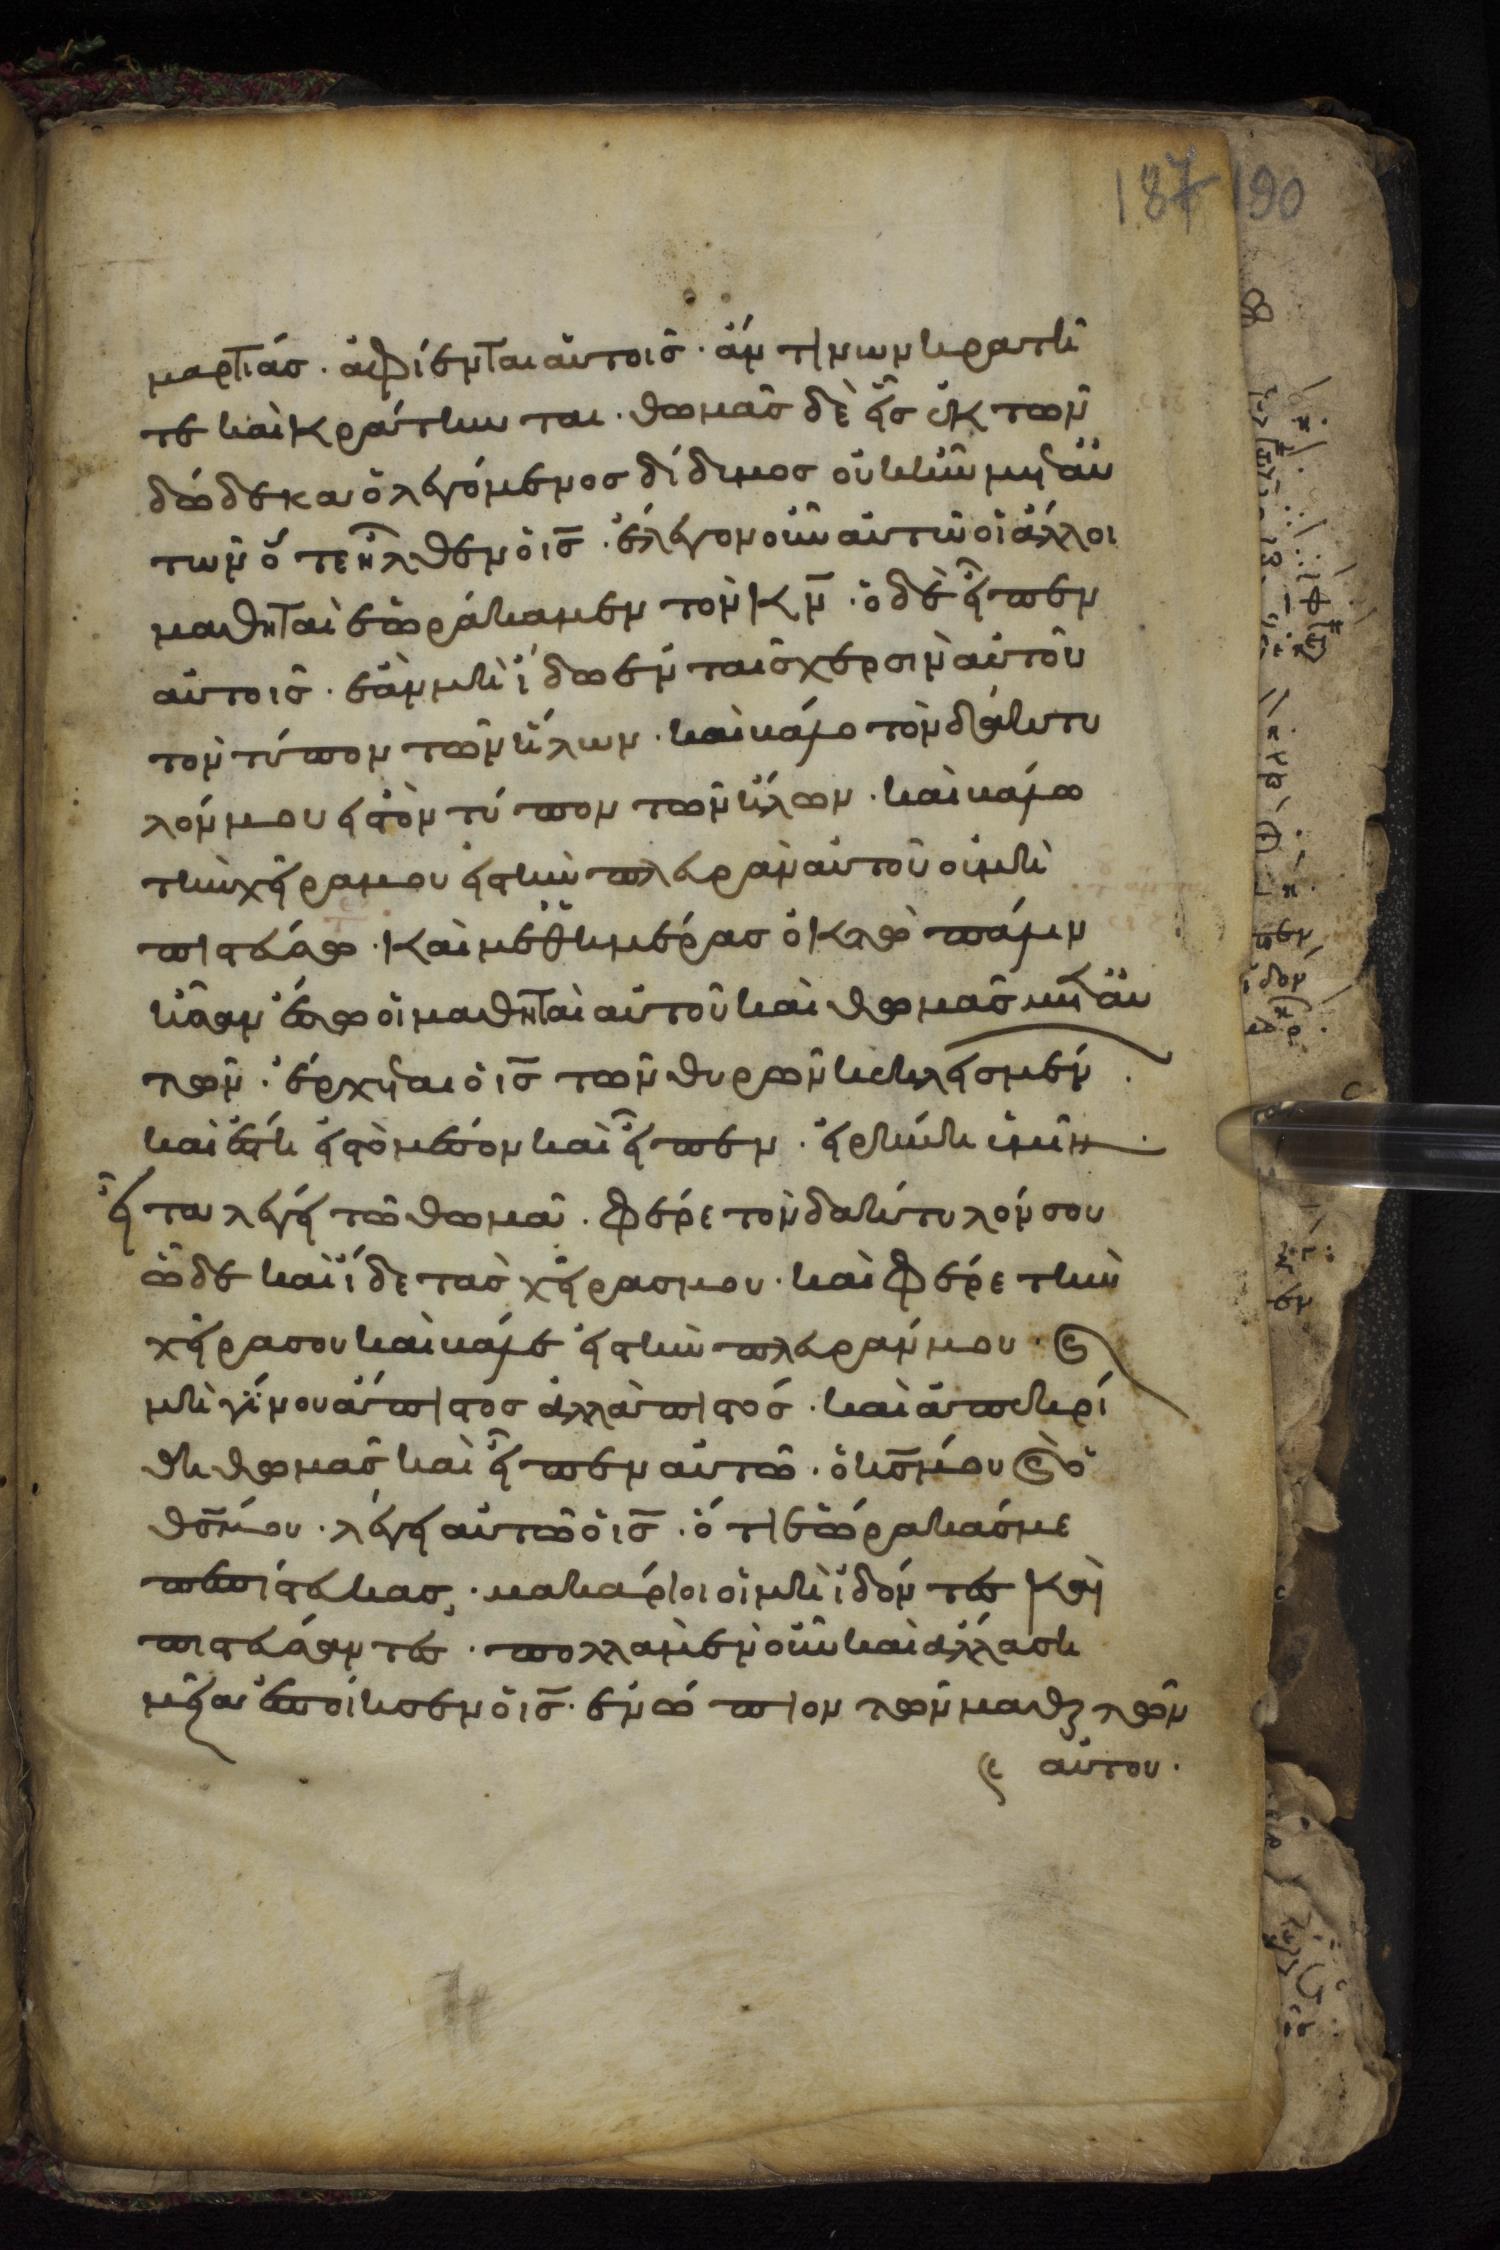 187 190
μαρτίας . ἀφίενται αὐτοῖς . ἄν τινων κρατῆ
τε κεκράτηνται . θωμᾶς δὲ εἷς ἐκ τῶν
δώδεκα ὁ λεγόμενος δίδιμος οὐκ ἦν μετ αὐ
τῶν ὅτε ἦλθεν ὁ ις̅ . ἔλεγον οὖν αὐτῶ οἱ ἄλλοι
μαθηταὶ ἑωράκαμεν τὸν κν̅ . ὁ δὲ εἶπεν
αὐτοῖς . ἐὰν μὴ ἴδω ἐν ταῖς χερσὶν αὐτοῦ
τὸν τύπον τῶν ἥλων . καὶ βάλο τὸν δάκτυ
λόν μου εἰς τὸν τύπον τῶν ἥλων . καὶ βάλω
τὴν χεῖρα μου εἰς τὴν πλευρὰν αὐτοῦ οὐ μὴ
πιστεύσω . καὶ μεθ ἡμέρας ὀκτὼ πάλιν
ἦσαν ἔσω οἱ μαθηταὶ αὐτοῦ καὶ θωμᾶς μετ αὐ
τῶν . ἔρχεται ὁ ις̅ τῶν θυρῶν κεκλεισμέν
καὶ ἔστη εἰς τὸ μέσον καὶ εἶπεν . εἰρήνη ὑμῖν .
εἶτα λέγει τῶ θωμᾶ . φέρε τὸν δάκτυλόν σου
ὧδε καὶ ἴδε τὰς χεῖρας μου . καὶ φέρε τὴν
χεῖρα σου καὶ βάλε εἰς τὴν πλευράν μου . καὶ
μὴ γίνου ἄπιστος ἀλλὰ πιστός . καὶ ἀπεκρί
θη θωμᾶς καὶ εἶπεν αὐτῶ . ὁ κς̅ μου καὶ ὁ
θς̅ μου . λέγει αὐτῶ ὁ ις̅ . ὅτι ἑώρακάς με
πεπίστευκας . μακάριοι οἱ μὴ ἰδόντες καὶ
πιστεύσαντες . πολλὰ μὲν οὖν καὶ ἄλλα ση
μεῖα ἐποίησεν ὁ ις̅ . ἐνώπιον τῶν μαθητῶν
αὐτου .